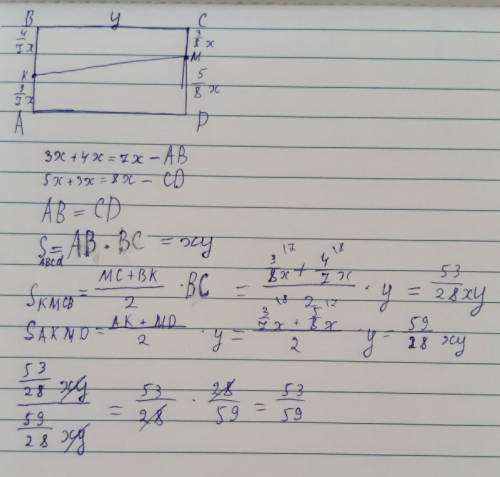 B y C
4/7 x 3/8 x
K M
3/7 x 5/8 x
A D
3x + 4x = 7x - AB
5x + 3x = 8x - CD
AB = CD
S_ABCD = AB · BC = xy
S_KMCB = (MC + BK)/2 · BC = (3/8 x + 4/7 x)/2 · y = 53/28 xy
S_AKMD = (AK + MD)/2 · y = (3/7 x + 5/8 x)/2 · y = 59/28 xy
(53/28 xy)/(59/28 xy) = 53/28 · 28/59 = 53/59